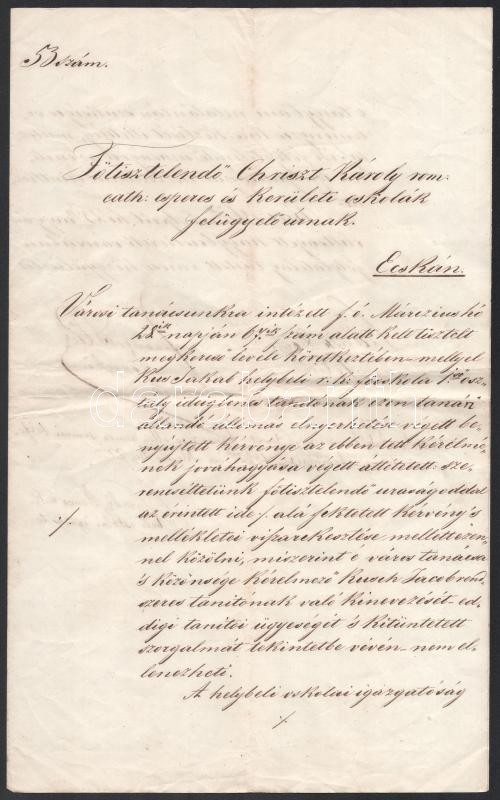 53 szám.
Főtisztelendő Chriszt Károly rom:
cath: esperes és kerületi oskolák
felügyelő úrnak.
Ecskán.
Városi tanácsunkra intézett f. é. Márczius hó
28ik napján 67 szám alatt kelt tisztelt
megkereső levele következtében – mellyel
Kus Jakab helybeli r. k. főoskola 1ső osz-
tály ideiglenes tanítónak ezen tanári
állandó állomás elnyerhetése végett be-
nyújtott kérvénye az ebben tett kérelmé-
nek jóváhagyása végett áttétetett: sze-
rencséltetünk főtisztelendő urasággoddal
az érintett ide ·/. alá fektetett kérvény 's
·/.
mellékletei visszarekesztése mellett ezen-
nel közölni, miszerint e város tanácsa
's közönsége kérelmező Kusch Jacob rend-
szeres tanítónak való kinevezését ed-
digi tanítói ügyességét 's kitüntetett
szorgalmát tekintetbe vévén – nem el-
lenezheti.
A helybeli oskolai igazgatóság
·/.
Darabanth